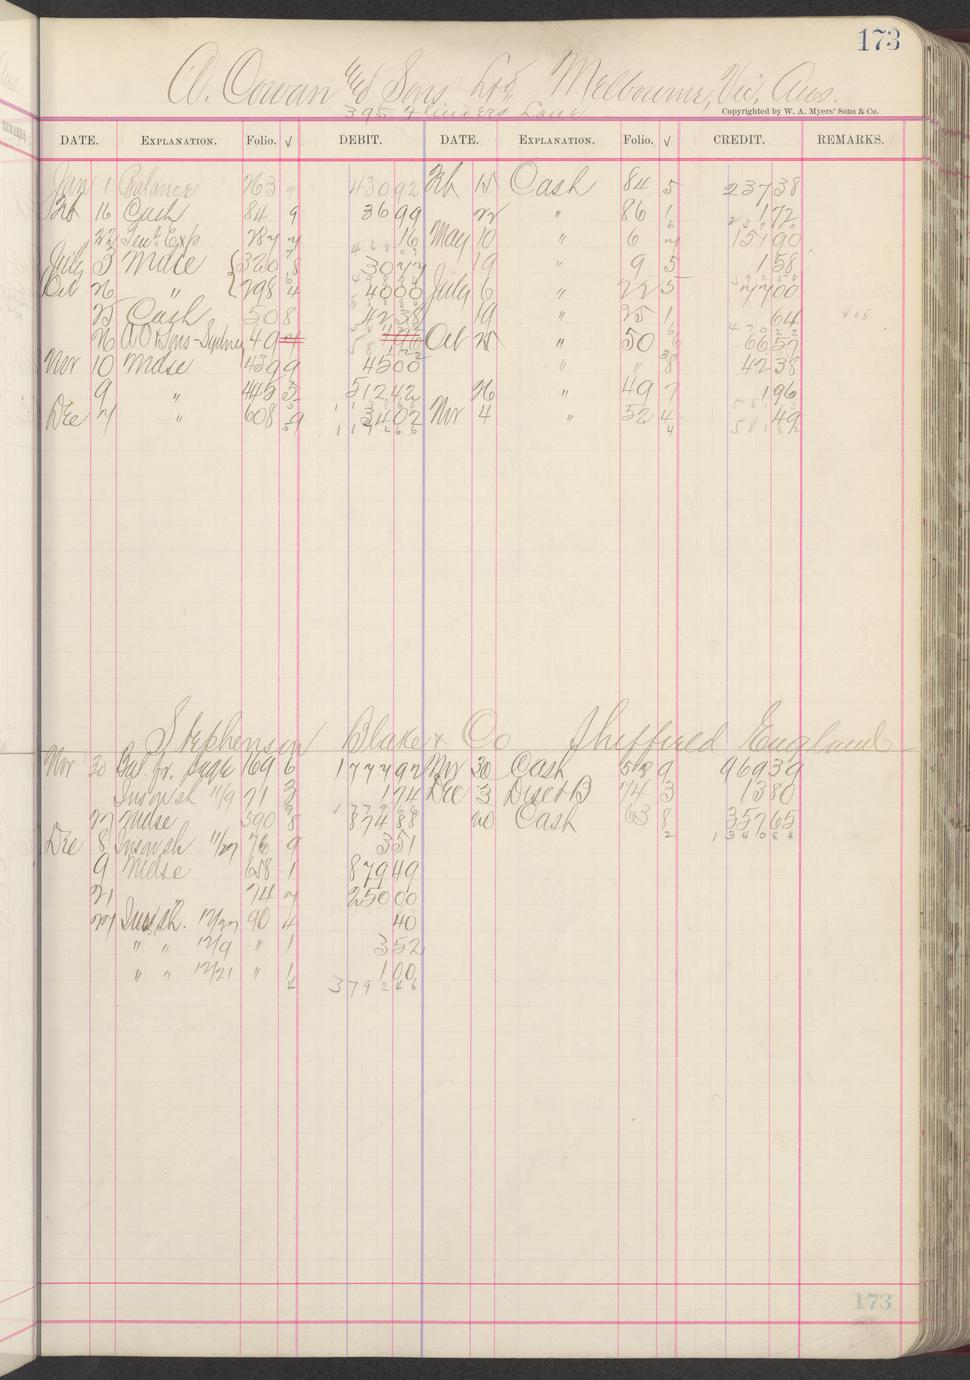 173
A. Cowan and Sons Ltd Melbourne, Vic, Aus.
395 Flinders Lane
Copyrighted by W. A. Myers' Sons & Co.
DATE. EXPLANATION. Folio. √ DEBIT. DATE. EXPLANATION. Folio. √ CREDIT. REMARKS.
Jan 1 Balance 263 9 430 92 Feb 15 Cash 84 5 237 38
Feb 16 Cash 84 9 36 99 22 " 86 1 1 72
22 Genl Exp 287 7 16 May 10 " 6 7 157 90
July 3 Mdse 320 8 30 77 19 " 9 5 1 58
Oct 26 " 298 4 40 00 July 6 " 22 5 77 00
25 Cash 50 8 42 38 19 " 25 1 64
26 A C & Sons - Sydney 49 7 1 96 Oct 25 " 50 6 66 57
Nov 10 Mdse 439 9 45 00 " " 8 42 38
9 445 3 512 42 26 49 7 1 96
Dec 7 " 608 9 34 02 Nov 4 " 52 4 49
1 1 7 2 6 6 5 8 1 6 2
Stephenson Blake & Co Sheffield England
Nov 30 Bal. fr. page 169 6 1777 92 Nov 30 Cash 9 969 39
Ins on sh 11/9 71 3 1 74 Dec 3 Disct B 74 3 13 80
27 Mdse 590 8 874 88 20 Cash 63 8 357 65
Dec 8 Ins on sh 11/27 76 9 3 51 1 3 4 0 8 4
9 Mdse 658 1 879 49
21 " 74 7 250 00
27 Ins sh. 12/27 90 4 40
" " 12/9 " 1 3 52
" " 12/21 " 1 1 00
3 7 9 2 4 6
173